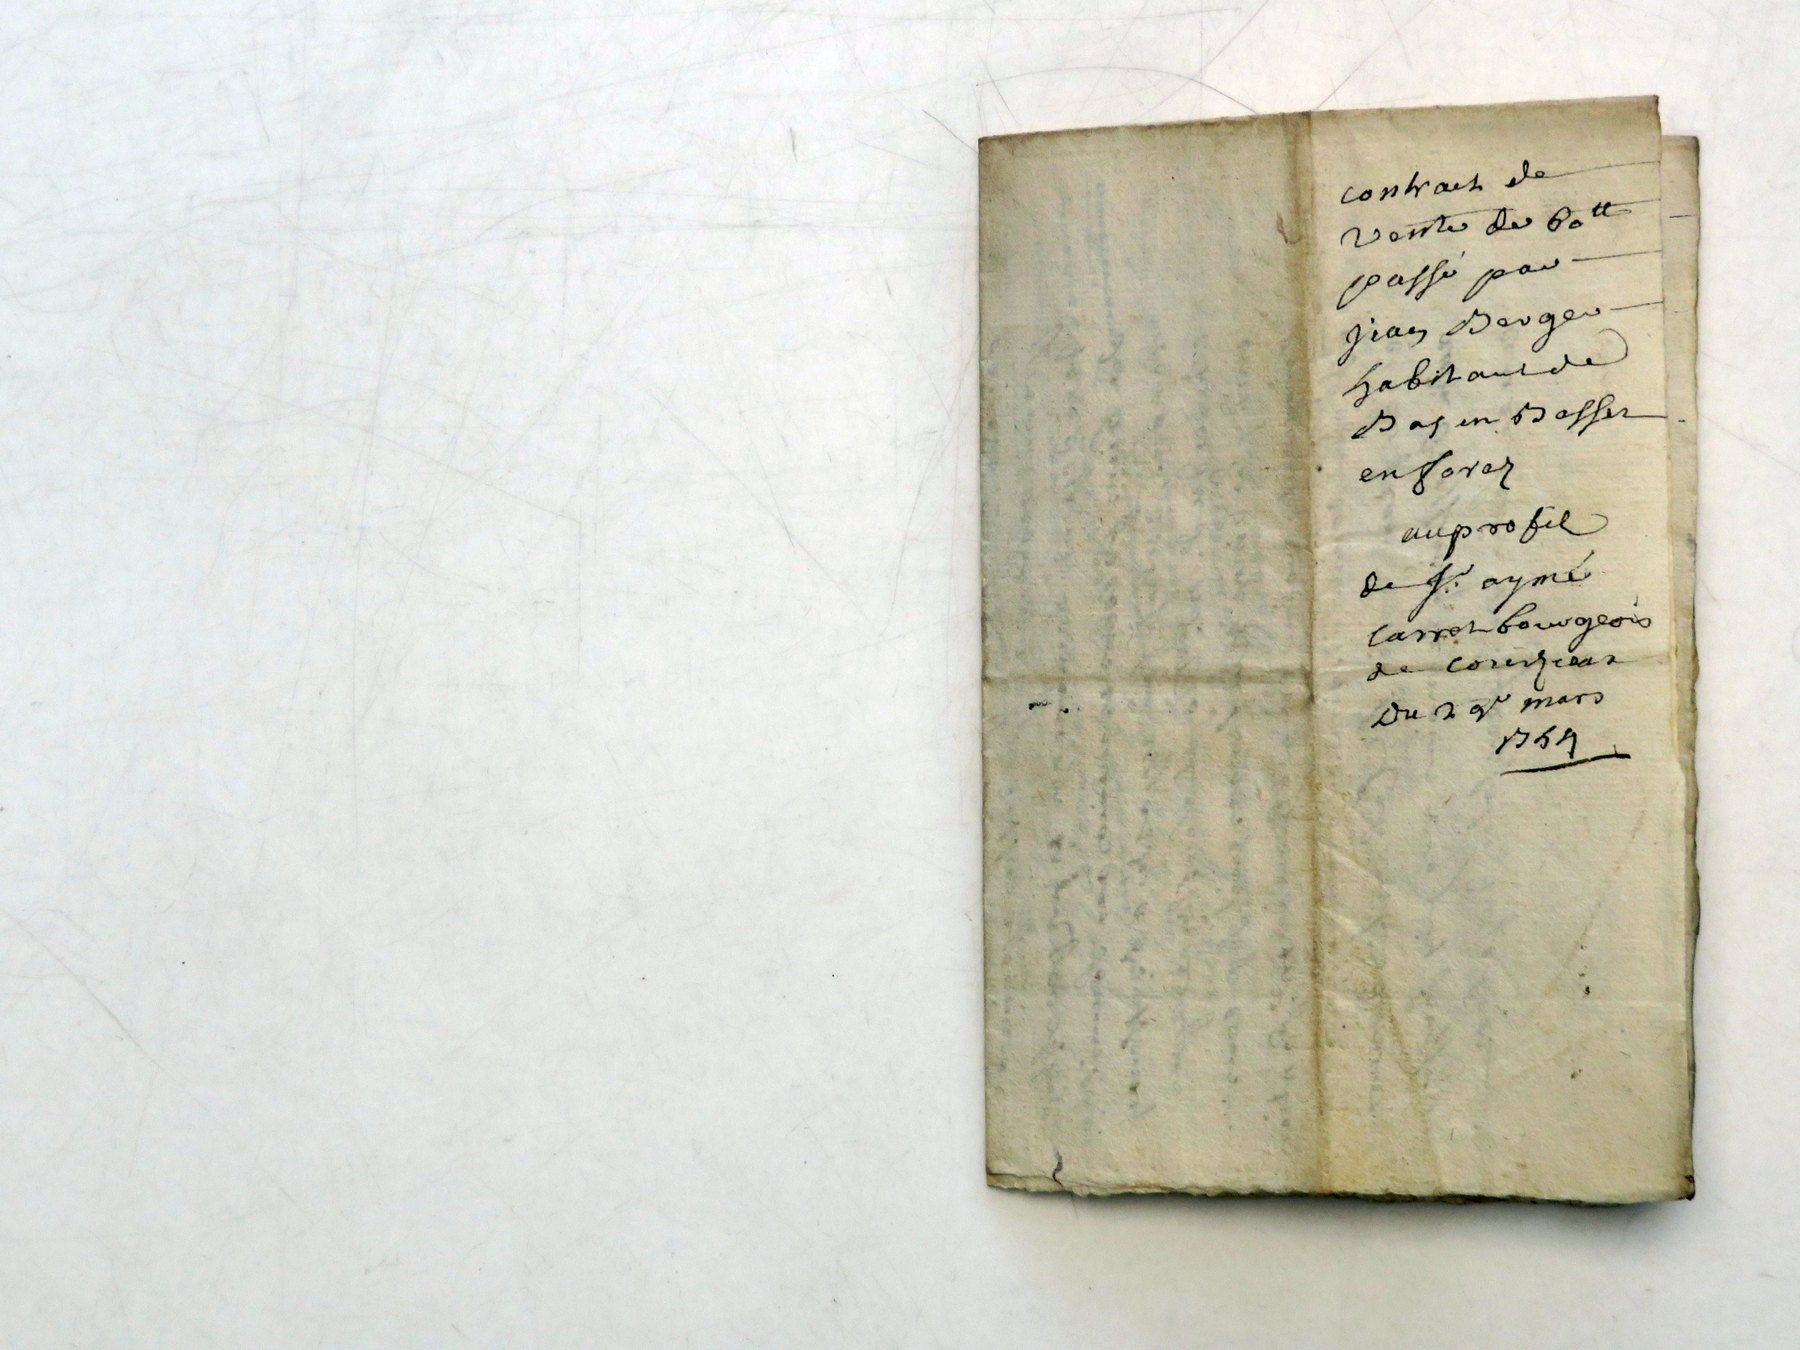 contract de
Vente de 60tt
passé par
jean Berger
habitant de
Bas en Basset
en forez
au profit
de Sr. aymé
Carret bourgeois
de
Du 29e mars